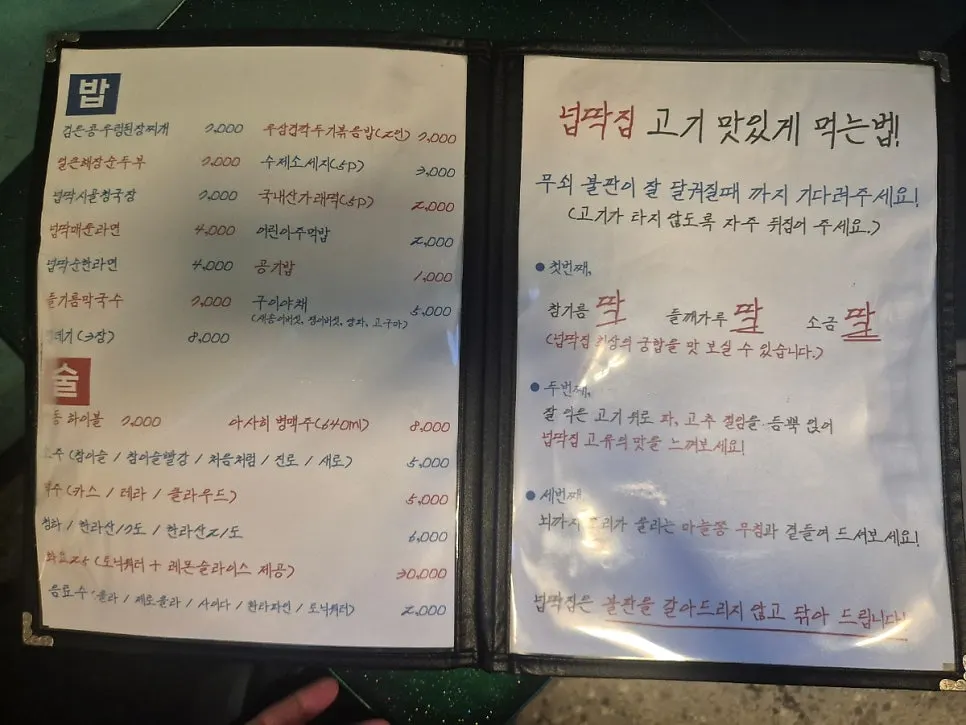 밥
검은콩우렁된장찌개 7,000
얼큰해장순두부 7,000
넙딱시골청국장 7,000
넙딱매운라면 4,000
넙딱순한라면 4,000
들기름막국수 7,000
(3장) 8,000
우삼겹깍두기볶음밥(2인) 7,000
수제소세지(5P) 3,000
국내산가래떡(5P) 2,000
어린이주먹밥 2,000
공기밥 1,000
구이야채 5,000
(새송이버섯, 양송이버섯, 양파, 고구마)
술
하이볼 7,000 아사히 병맥주(640ml) 8,000
(참이슬 / 참이슬빨강 / 처음처럼 / 진로 / 새로) 5,000
맥주 (카스 / 테라 / 클라우드) 5,000
청하 / 한라산17도 / 한라산21도 6,000
화요25 (토닉워터 + 레몬슬라이스 제공) 30,000
음료수 (콜라 / 제로콜라 / 사이다 / 환타파인 / 토닉워터) 2,000
넙딱집 고기 맛있게 먹는법!
무쇠 불판이 잘 달궈질때 까지 기다려주세요!
(고기가 타지 않도록 자주 뒤집어 주세요.)
● 첫번째,
참기름 딱 들깨가루 딱 소금 딱
(넙딱집 최상의 궁합을 맛 보실 수 있습니다.)
● 두번째,
잘 익은 고기 위로 파, 고추 절임을 듬뿍 얹어
넙딱집 고유의 맛을 느껴보세요!
● 세번째
뇌까지 올라는 마늘쫑 무침과 곁들여 드셔보세요!
넙딱집은 불판을 갈아드리지 않고 닦아 드립니다!